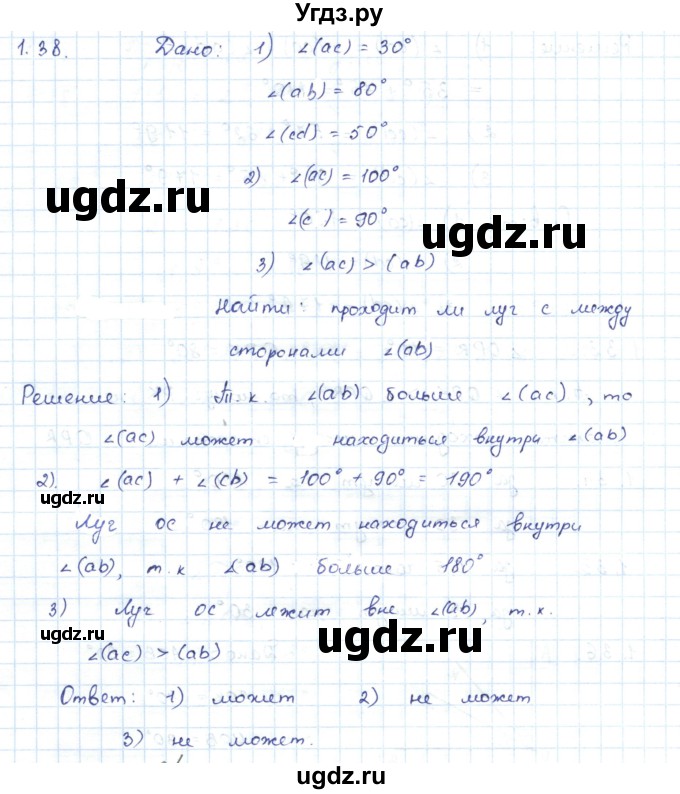 Угдз.ру
1.38. Дано: 1) ∠(ac) = 30°
∠(ab) = 80°
∠(cd) = 50°
2) ∠(ac) = 100°
∠(c ) = 90°
ugdz.ru
ugdz.ru
3) ∠(ac) > (ab)
Найти: проходит ли луг c между
сторонами ∠(ab)
Решение: 1) Т.к ∠(ab) больше ∠(ac), то
∠(ac) может находиться внутри ∠(ab)
2). ∠(ac) + ∠(cb) = 100° + 90° = 190°
ugdz.ru
Луг ос не может находиться внутри
∠(ab), т.к ∠(ab) больше 180°
3) Луг ос лежит вне ∠(ab), т.к.
ugdz.ru
ugdz.ru
∠(ac) > (ab)
Ответ: 1) может 2) не может
3) не может.
ugdz.ru